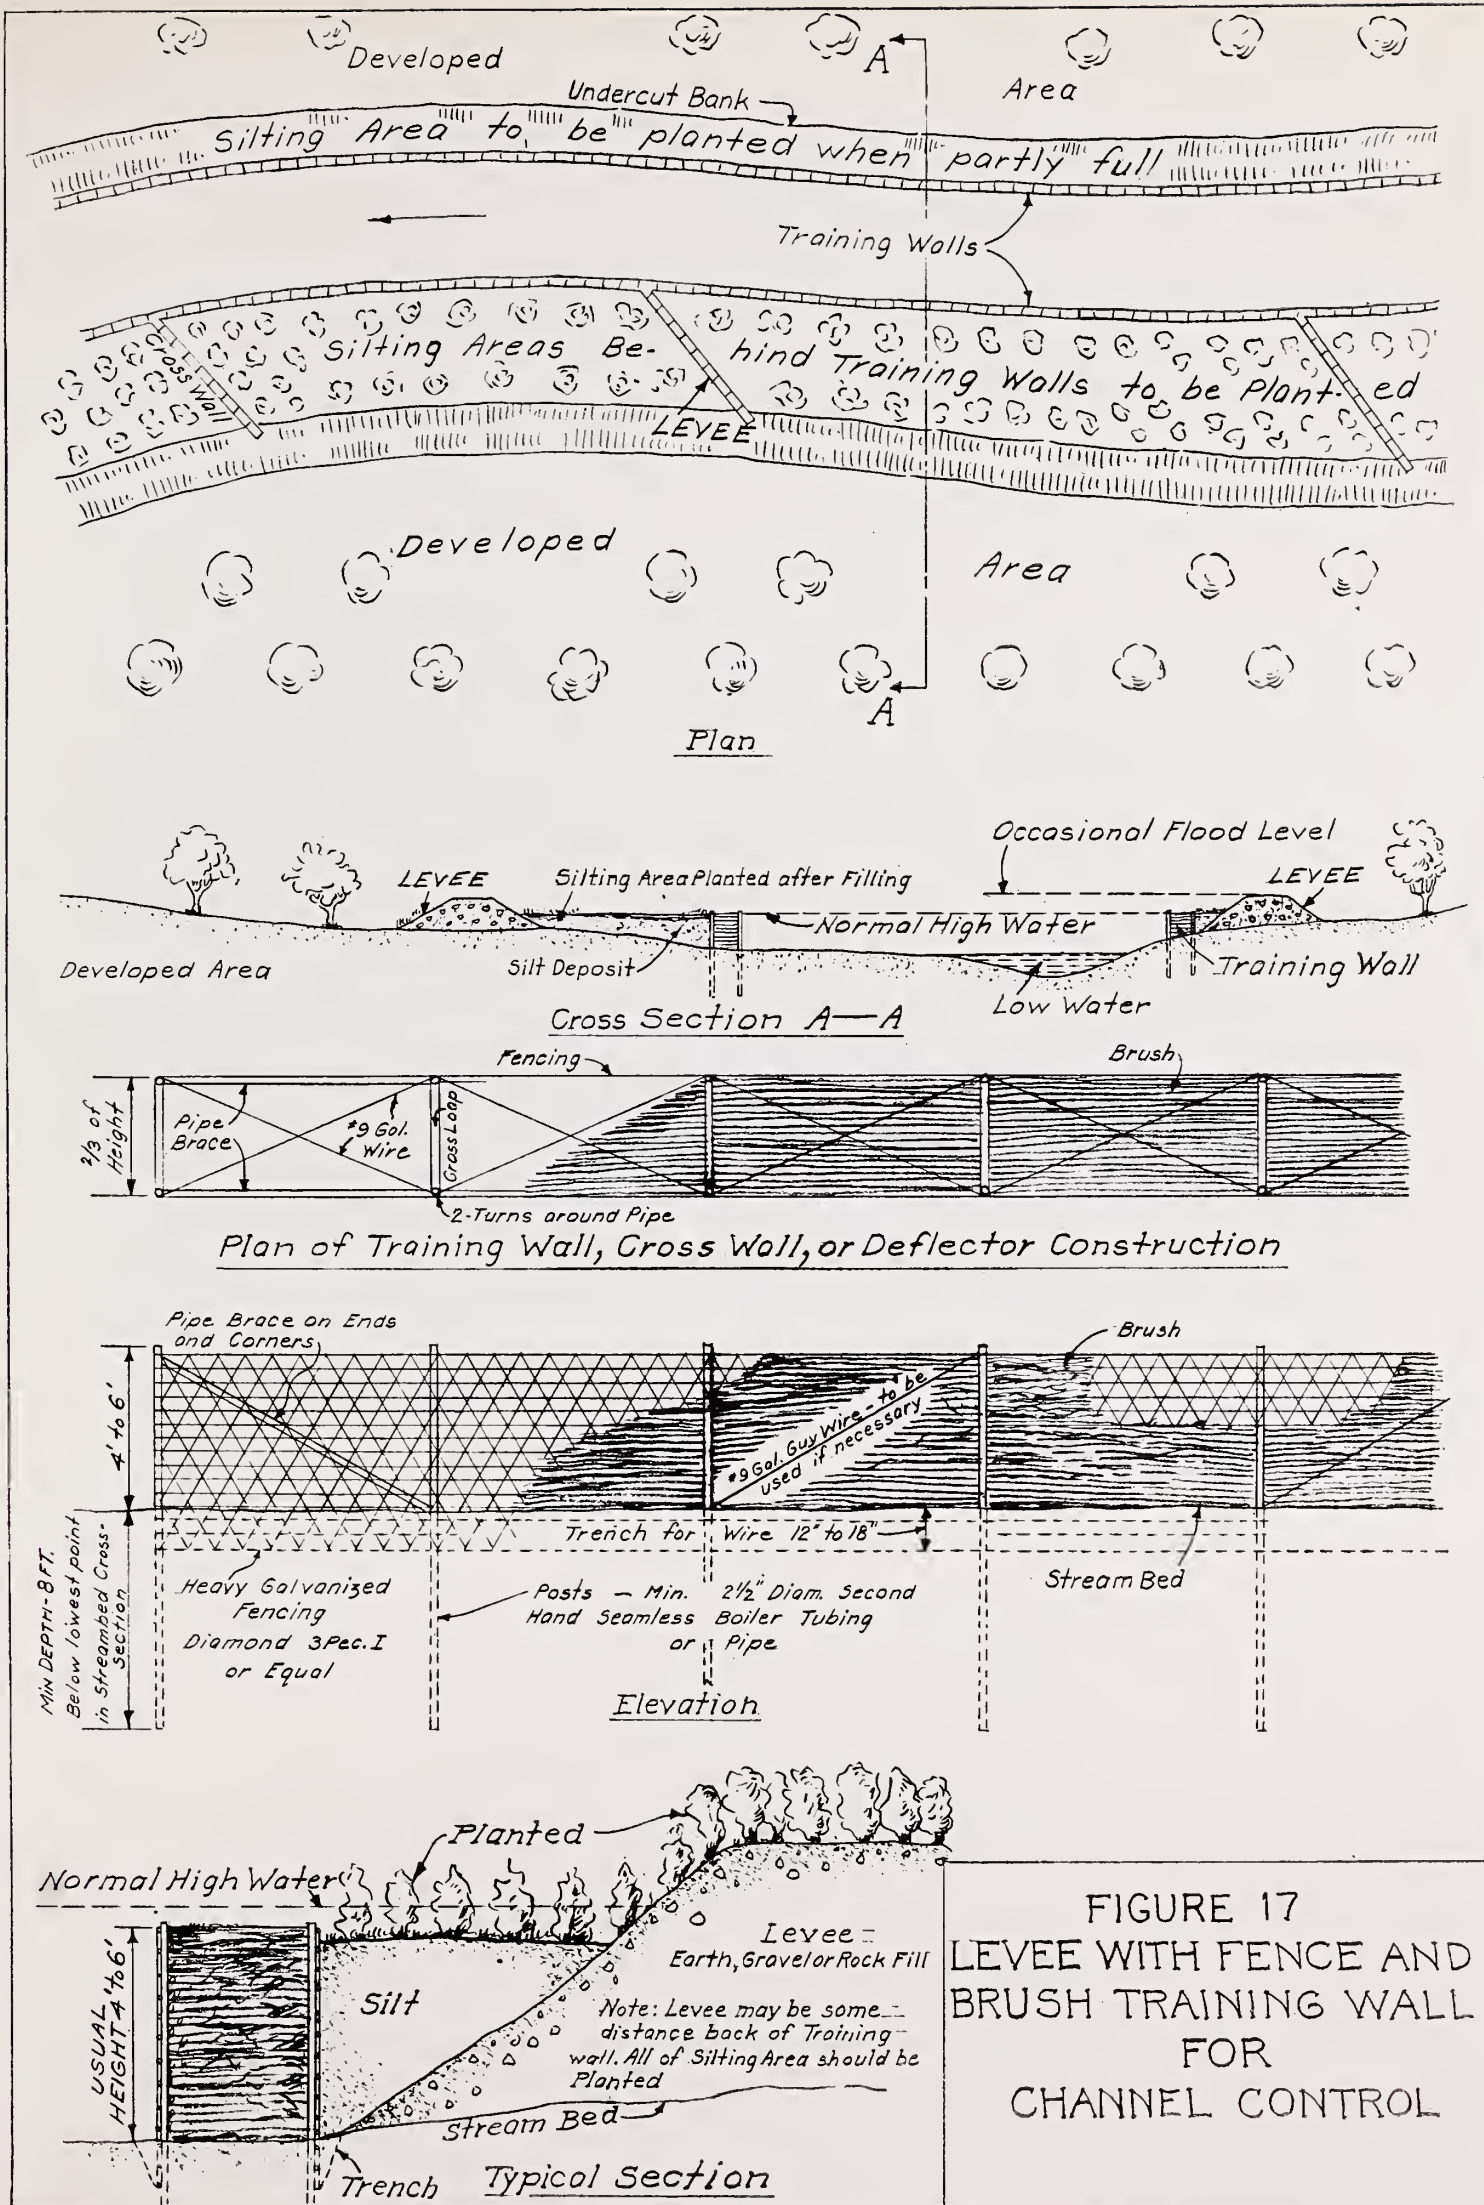 Developed
A
Area
Undercut Bank
Silting Area to be planted when partly full
Training Walls
Cross Wall
Silting Areas Be-
hind Training Walls to be Plant-
ed
LEVEE
Developed
Area
A
Plan
Occasional Flood Level
LEVEE
Silting Area Planted after Filling
LEVEE
Normal High Water
Developed Area
Silt Deposit
Training Wall
Low Water
Cross Section A—A
Fencing
Brush
2/3 of
Height
Pipe
Brace
#9 Gal.
Wire
Cross Loop
2-Turns around Pipe
Plan of Training Wall, Cross Wall, or Deflector Construction
Pipe Brace on Ends
and Corners
Brush
4' to 6'
#9 Gal. Guy Wire - to be
used if necessary
Trench for Wire 12" to 18"
MIN DEPTH-8 FT.
Below lowest point
in Streambed Cross-
Section
Heavy Galvanized
Fencing
Diamond 3Pec. I
or Equal
Posts — Min. 2½" Diam. Second
Hand Seamless Boiler Tubing
or Pipe
Stream Bed
Elevation
Planted
Normal High Water
USUAL
HEIGHT-4' to 6'
Silt
Levee =
Earth, Gravel or Rock Fill
Note: Levee may be some
distance back of Training
wall. All of Silting Area should be
Planted
Stream Bed
Trench
Typical Section
FIGURE 17
LEVEE WITH FENCE AND
BRUSH TRAINING WALL
FOR
CHANNEL CONTROL